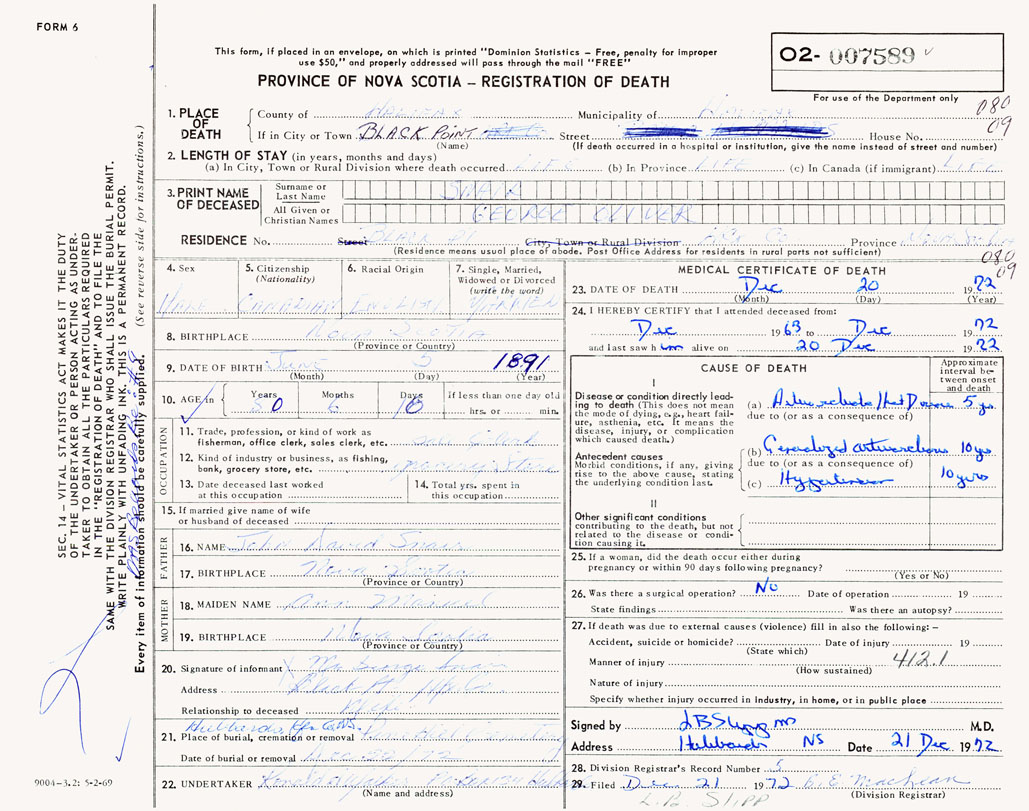 FORM 6
This form, if placed in an envelope, on which is printed "Dominion Statistics – Free, penalty for improper
use $50," and properly addressed will pass through the mail "FREE"
PROVINCE OF NOVA SCOTIA – REGISTRATION OF DEATH
02- 007589
For use of the Department only
080
09
1. PLACE OF DEATH
County of HALIFAX Municipality of HALIFAX
If in City or Town BLACK POINT Street House No.
(Name) (If death occurred in a hospital or institution, give the name instead of street and number)
2. LENGTH OF STAY (in years, months and days)
(a) In City, Town or Rural Division where death occurred LIFE (b) In Province LIFE (c) In Canada (if immigrant) LIFE
3. PRINT NAME OF DECEASED
Surname or Last Name SNAIR
All Given or Christian Names GEORGE OLIVER
RESIDENCE No. Street BLACK PT City, Town or Rural Division Province NOVA SCOTIA
(Residence means usual place of abode. Post Office Address for residents in rural parts not sufficient)
080
09
4. Sex
MALE
5. Citizenship (Nationality)
CANADIAN
6. Racial Origin
ENGLISH
7. Single, Married, Widowed or Divorced (write the word)
MARRIED
8. BIRTHPLACE NOVA SCOTIA
(Province or Country)
9. DATE OF BIRTH June 5 1891
(Month) (Day) (Year)
10. AGE in Years Months Days If less than one day old
80 6 hrs. or min.
OCCUPATION
11. Trade, profession, or kind of work as
fisherman, office clerk, sales clerk, etc.
12. Kind of industry or business, as fishing,
bank, grocery store, etc. grocery Store
13. Date deceased last worked
at this occupation
14. Total yrs. spent in
this occupation
15. If married give name of wife
or husband of deceased
FATHER
16. NAME John David Snair
17. BIRTHPLACE Nova Scotia
(Province or Country)
MOTHER
18. MAIDEN NAME Ann
19. BIRTHPLACE Nova Scotia
(Province or Country)
20. Signature of informant Mrs George Snair
Address Black Pt Hfx Co
Relationship to deceased Wife
Hubbards Hfx Co NS.
21. Place of burial, cremation or removal
Date of burial or removal Dec 22/72
22. UNDERTAKER
(Name and address)
MEDICAL CERTIFICATE OF DEATH
23. DATE OF DEATH Dec 20 1972
(Month) (Day) (Year)
24. I HEREBY CERTIFY that I attended deceased from:
Dec 1963 to Dec 1972
and last saw him alive on 20 Dec 1972
CAUSE OF DEATH
Approximate interval between onset and death
I
Disease or condition directly leading
to death (This does not mean
the mode of dying, e.g., heart failure,
asthenia, etc. It means the
disease, injury, or complication
which caused death.)
(a) Heart Disease 5 yrs
due to (or as a consequence of)
Antecedent causes
Morbid conditions, if any, giving
rise to the above cause, stating
the underlying condition last.
(b) Generalized arteriosclerosis 10 yrs
due to (or as a consequence of)
(c) Hypertension 10 yrs
II
Other significant conditions
contributing to the death, but not
related to the disease or condition
causing it.
25. If a woman, did the death occur either during
pregnancy or within 90 days following pregnancy?
(Yes or No)
26. Was there a surgical operation? No Date of operation 19
State findings Was there an autopsy?
27. If death was due to external causes (violence) fill in also the following: –
Accident, suicide or homicide? Date of injury 19
(State which)
Manner of injury 412.1
(How sustained)
Nature of injury
Specify whether injury occurred in industry, in home, or in public place
Signed by M.D.
Address Hubbards NS Date 21 Dec 1972
28. Division Registrar's Record Number 5
29. Filed Dec 21 1972
(Division Registrar)
L.B. SLIPP
SEC. 14 – VITAL STATISTICS ACT MAKES IT THE DUTY
OF THE UNDERTAKER OR PERSON ACTING AS UNDER-
TAKER TO OBTAIN ALL THE PARTICULARS REQUIRED
IN THE "REGISTRATION OF DEATH" AND TO FILE THE
SAME WITH THE DIVISION REGISTRAR WHO SHALL ISSUE THE BURIAL PERMIT.
WRITE PLAINLY WITH UNFADING INK. THIS IS A PERMANENT RECORD.
Every item of information should be carefully supplied. (See reverse side for instructions.)
9004-3.2: 5-2-69